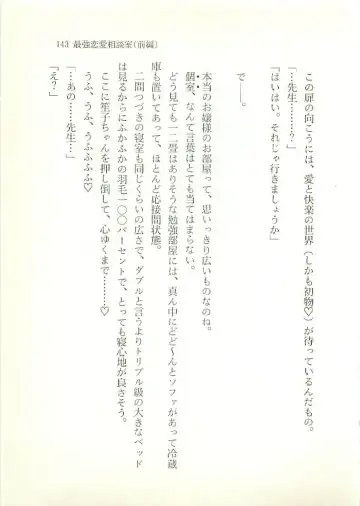 143 最強恋愛相談室(前編)
この扉の向こうには、愛と快楽の世界(しかも初物♡)が待っているんだもの。
「…先生………?」
「はいはい。それじゃ行きましょうか」
で――。
本当のお嬢様のお部屋って、思いっきり広いものなのね。
個室、なんて言葉はとても当てはまらない。
どう見ても一二畳はありそうな勉強部屋には、真ん中にどど〜んとソファがあって冷蔵
庫も置いてあって、ほとんど応接間状態。
二間つづきの寝室も同じくらいの広さで、ダブルと言うよりトリプル級の大きなベッド
は見るからにふかふかの羽毛一〇〇パーセントで、とっても寝心地が良さそう。
ここに笙子ちゃんを押し倒して、心ゆくまで………♡
うふ、うふ、うふふふふ♡
「…あの……先生…」
「え?」